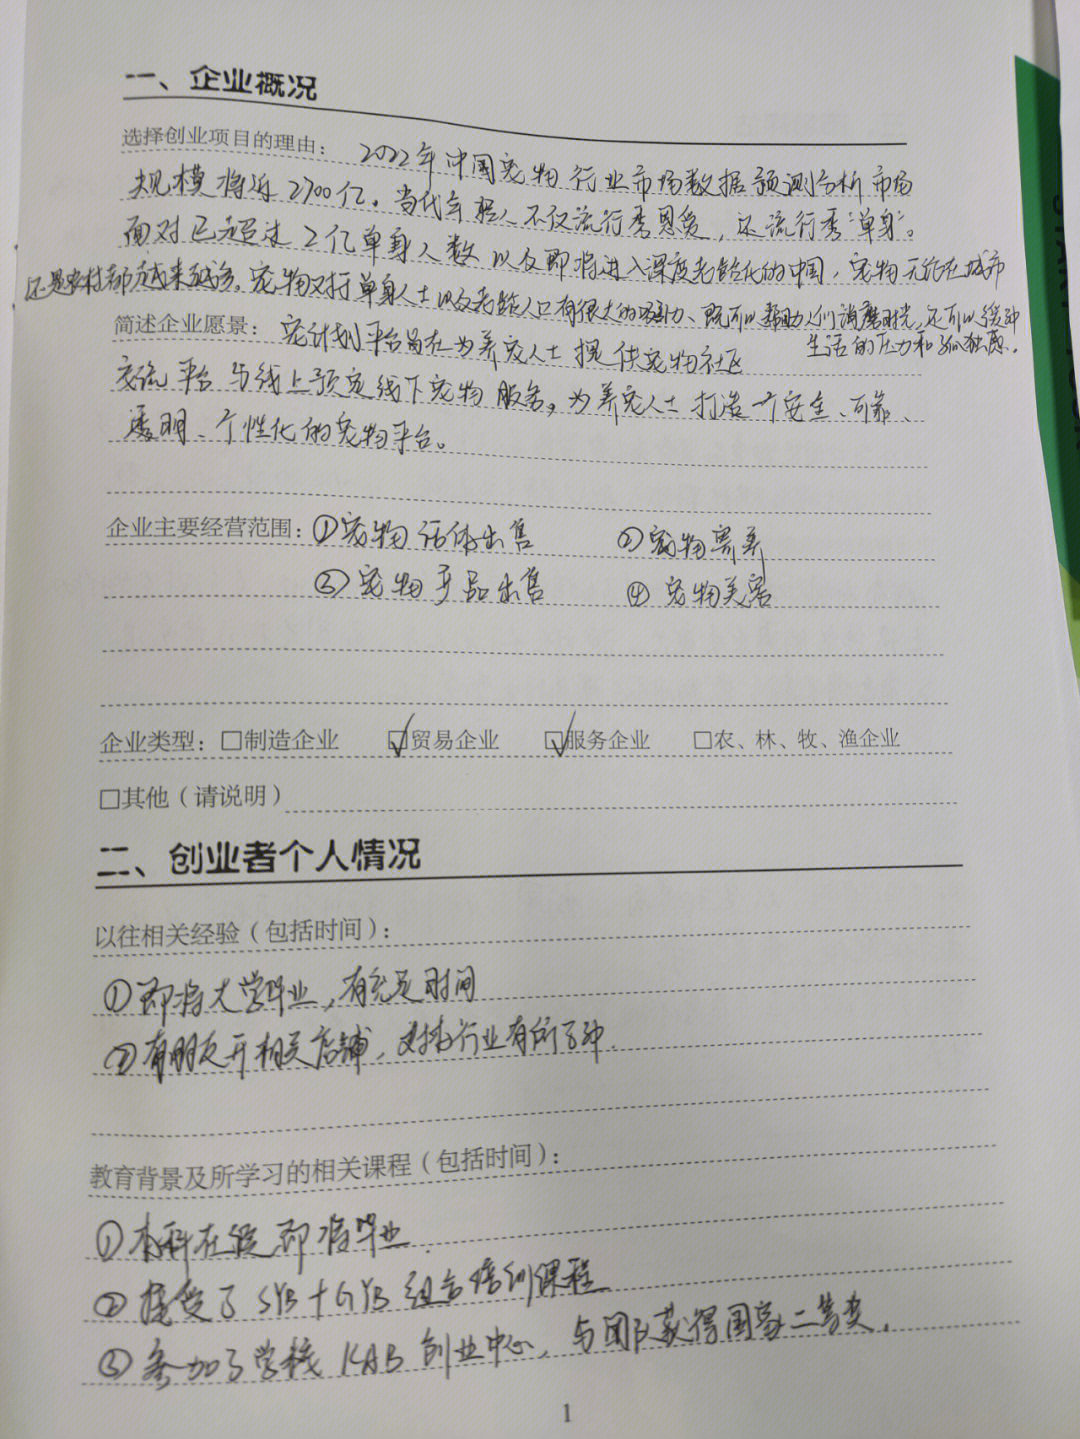 一、企业概况
选择创业项目的理由： 2022年中国宠物行业市场数据预测分析市场
规模将近2700亿。当代年轻人不仅流行秀恩爱，还流行秀“单身”。
面对已超过2亿单身人数以及即将进入深度老龄化的中国，宠物无论在城市
还是农村都越来越多。宠物对于单身人士以及老龄人口有很大的吸引力、既可以帮助人们消磨时光，还可以缓冲
生活的压力和孤独感。
简述企业愿景：宠计划平台旨在为养宠人士提供宠物社区
交流平台与线上预定线下宠物服务，为养宠人士打造一个安全、可靠、
透明、个性化的宠物平台。
企业主要经营范围：①宠物活体出售 ②宠物寄养
③宠物产品出售 ④宠物美容
企业类型：□制造企业 ☑贸易企业 ☑服务企业 □农、林、牧、渔企业
□其他（请说明）
二、创业者个人情况
以往相关经验（包括时间）：
①即将大学毕业，有充足时间
②有朋友开相关店铺，对该行业有所了解.
教育背景及所学习的相关课程（包括时间）：
①本科在读即将毕业.
②接受了SYB+GYB组合培训课程
③参加了学校KAB创业中心，与团队获得国家二等奖.
1